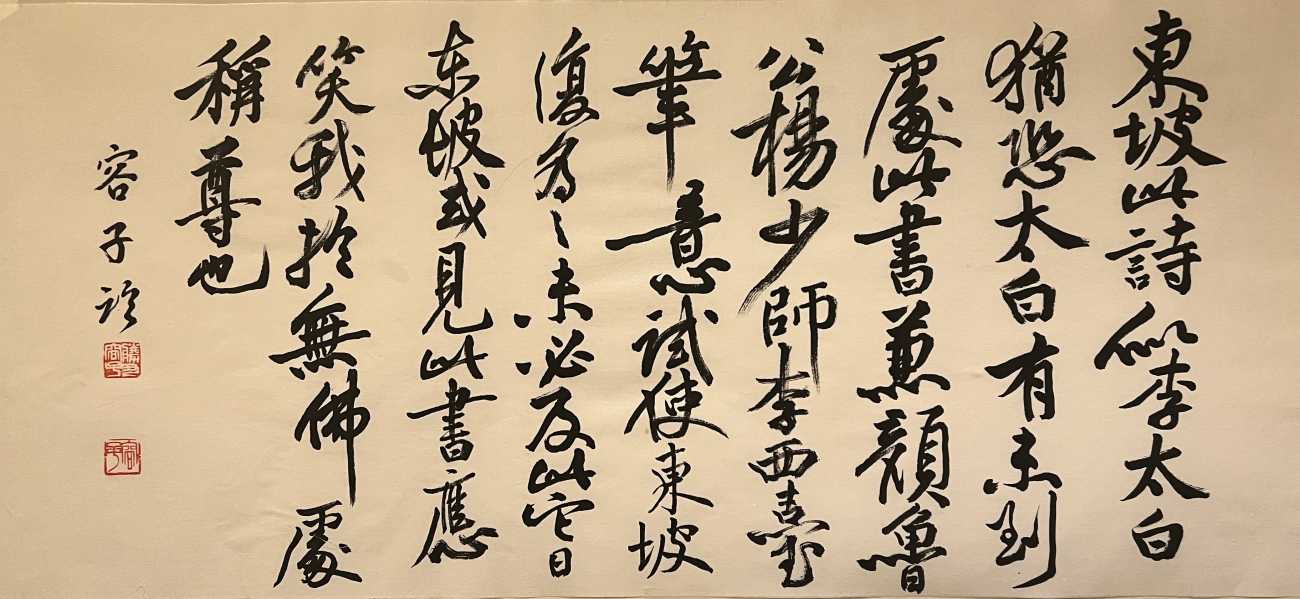 東坡此詩似李太白
猶恐太白有未到
處此書兼顏魯
公楊少師李西臺
筆意試使東坡
復為之未必及此它日
东坡或見此書應
笑我於無佛處
稱尊也
容子